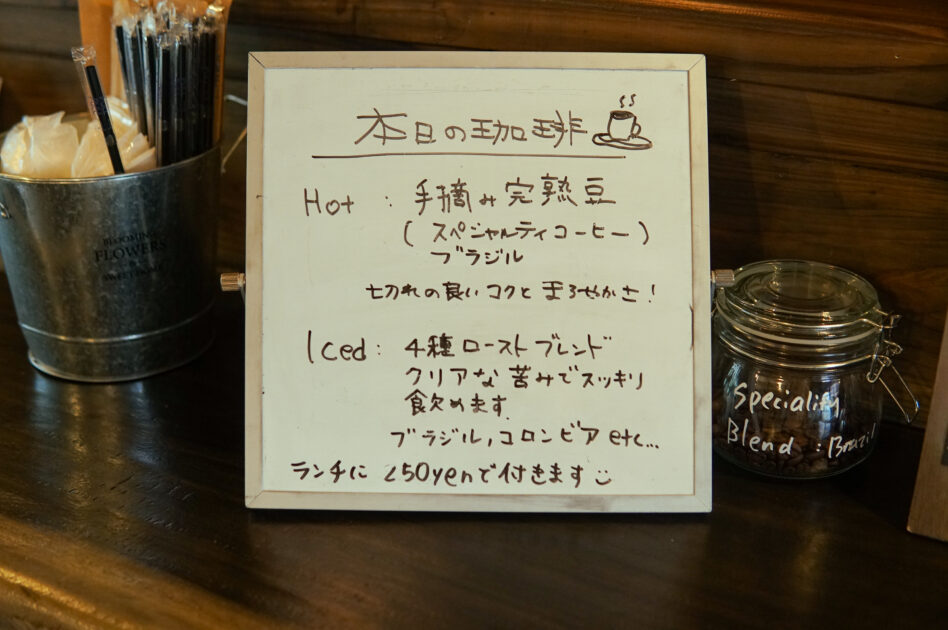 本日の珈琲
Hot : 手摘み完熟豆
(スペシャルティコーヒー)
ブラジル
切れの良いコクとまろやかさ!
Iced : 4種ローストブレンド
クリアな苦みでスッキリ
飲めます.
ブラジル, コロンビア etc...
ランチに 250yenで付きます
BLOOMING
FLOWERS
Speciality
Blend : Brazil